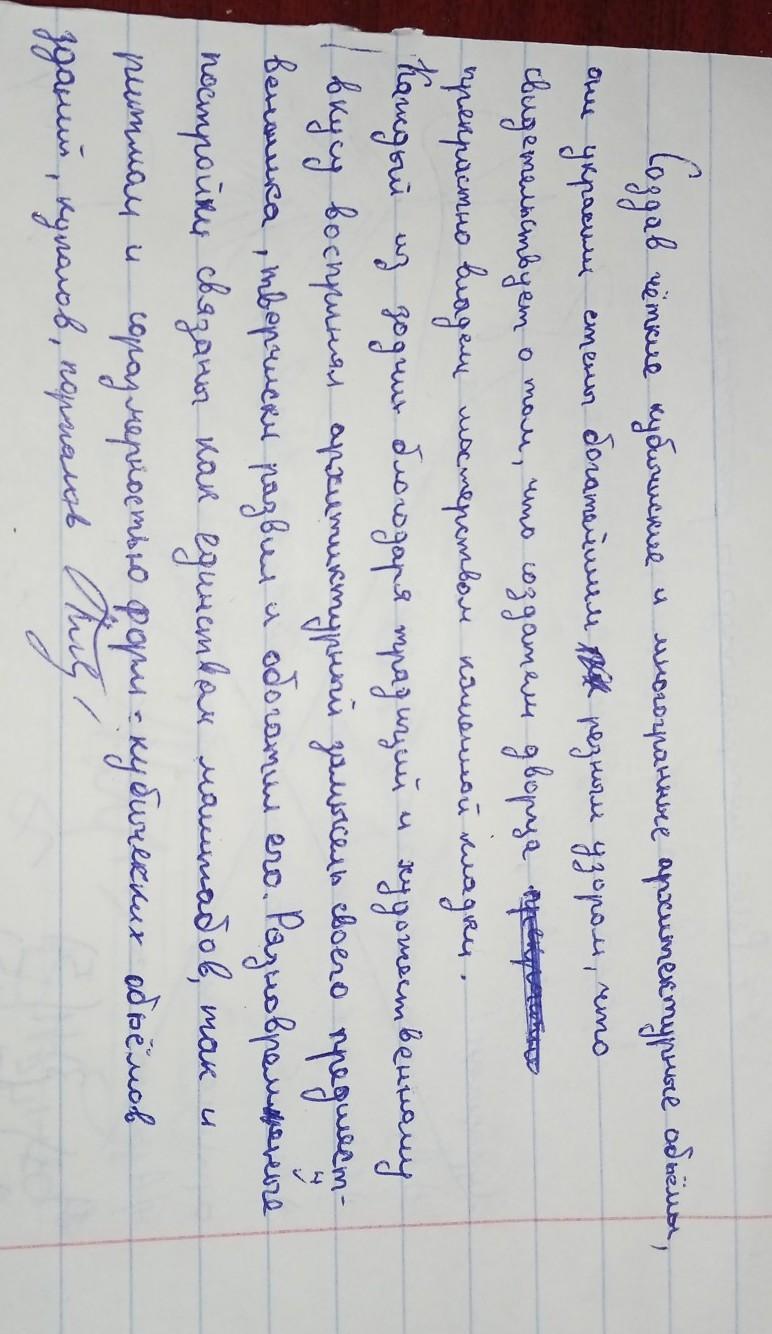 Создав чёткие кубические и многогранные архитектурные объёмы,
они украсили стены богатейшим резным узором, что
свидетельствует о том, что создатели дворца
прекрастно владели мостерством каменной кладки.
Каждый из зодчих благодаря традиций и художественному
вкусу воспринял архитиктурный замысель своего предшест-
веника, творчиски развил и обогатил его. Разновременые
постройки связаны как единством маштабов, так и
ритмам и соразмерностью форм - кубических объёмов
зданий, куполов, парталов